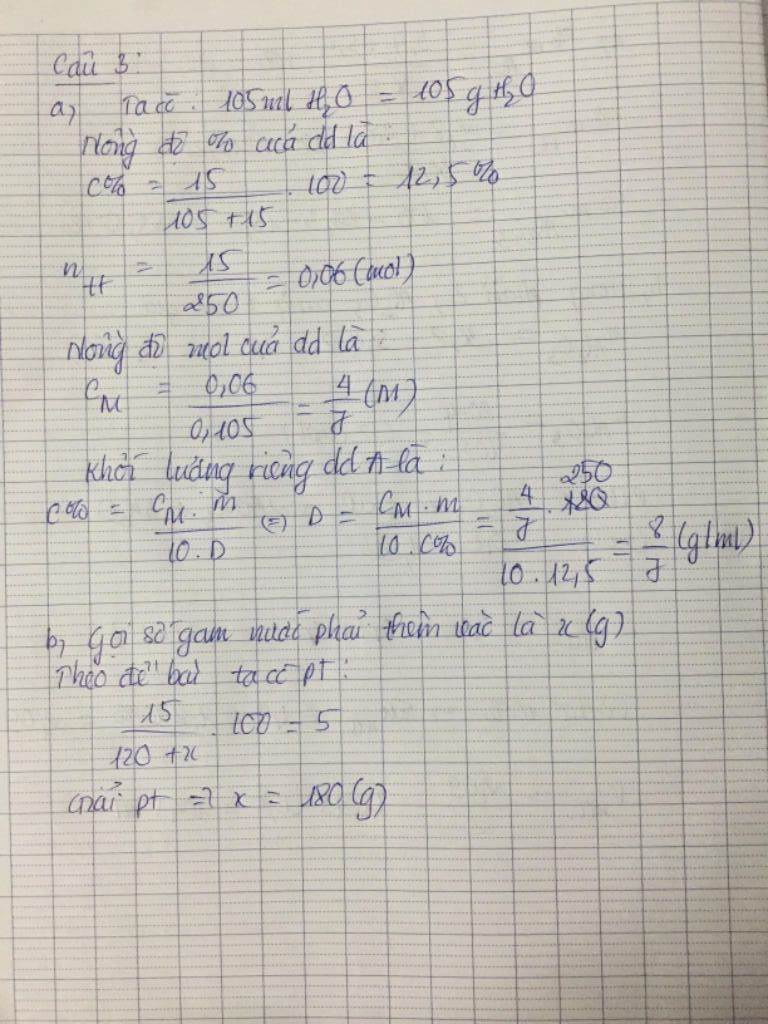 Câu 3:
a, Ta có: 105ml H₂O = 105g H₂O
Nồng độ % của dd là:
C% = 15/(105 + 15) . 100 = 12,5%
n_tt = 15/250 = 0,06 (mol)
Nồng độ mol của dd là:
C_M = 0,06/0,105 = 4/7 (M)
Khối lượng riêng dd A là:
C% = (C_M . m)/(10 . D) (=) D = (C_M . m)/(10 . C%) = (4/7 . 250)/(10 . 12,5) = 8/7 (g/ml)
b, Gọi số gam nước phải thêm vào là x (g)
Theo đề bài ta có pt:
15/(120 + x) . 100 = 5
Giải pt => x = 180 (g)